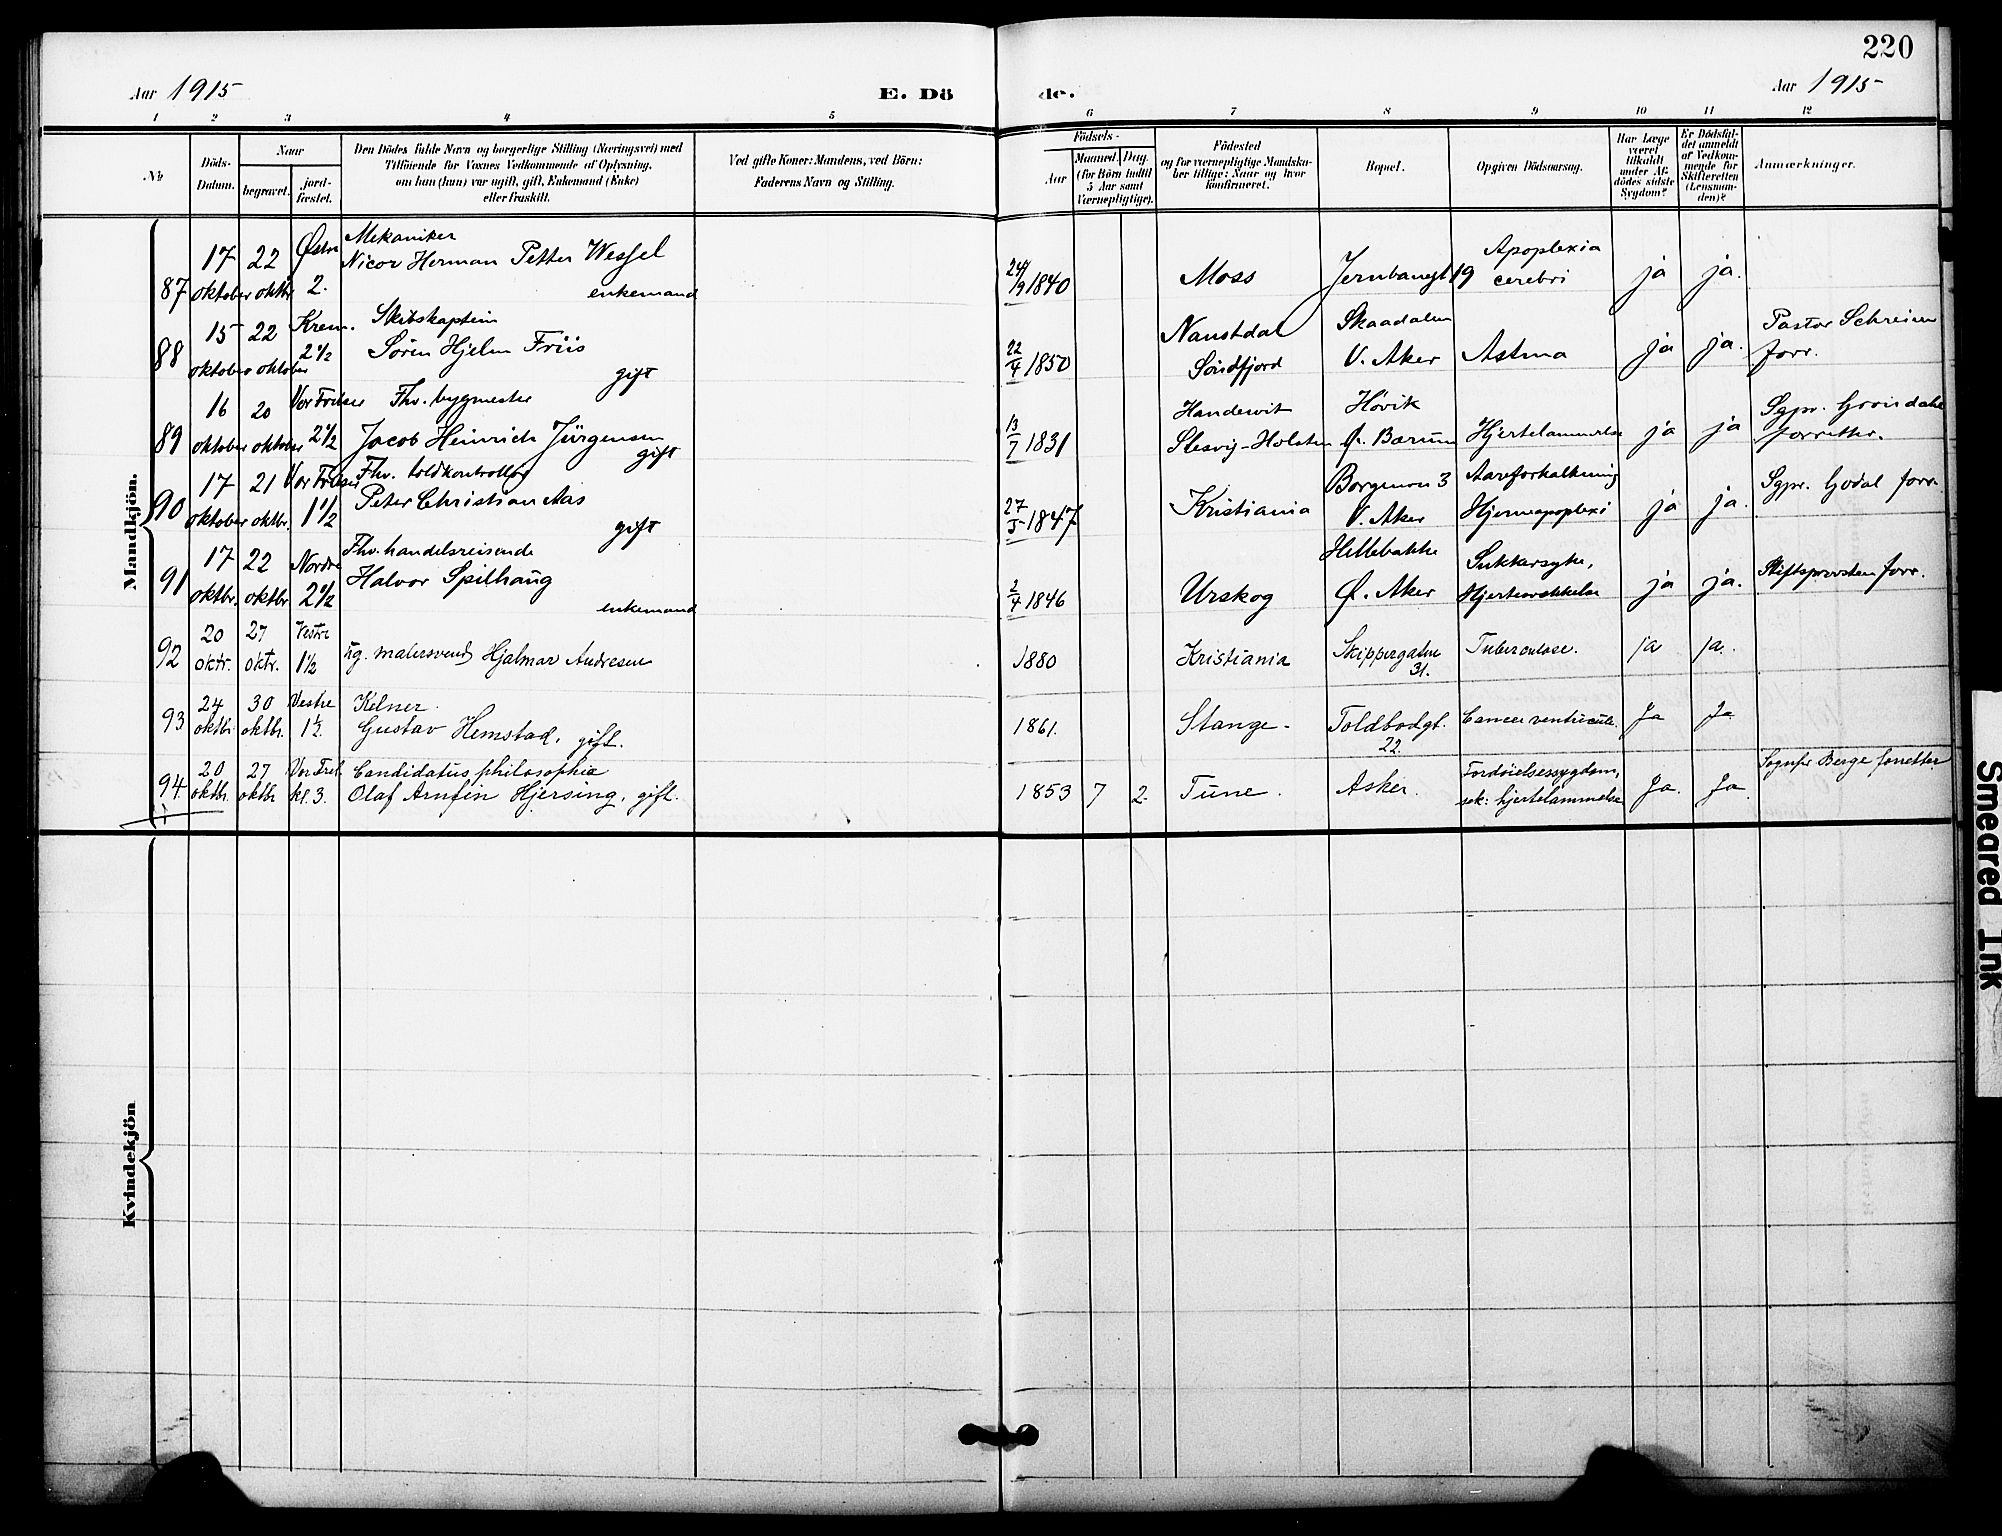 220
Aar 1915
E. Dö
de.
Aar 1915
1 2 3 4 5 6 7 8 9 10 11 12
No
Döds-
Datum.
Naar
begravet.
jord-
fæstet.
Den Dödes fulde Navn og borgerlige Stilling (Næringsvei) med
Tilföiende for Voxnes Vedkommende af Oplysning,
om han (hun) var ugift, gift, Enkemand (Enke)
eller fraskilt.
Ved gifte Koner: Mandens, ved Börn:
Faderens Navn og Stilling.
Födsels-
Aar
Maaned. Dag.
(for Börn indtil
5 Aar samt
Værnepligtige).
Födested
og for værnepligtige Mandska-
ber tillige: Naar og hvor
konfirmeret.
Bopæl.
Opgiven Dödsaarsag.
Har Læge
været
tilkaldt
under Af-
dödes sidste
Sygdom?
Er Dödsfal-
det anmeldt
af Vedkom-
mende for
Skifteretten
(Lensman-
den)?
Anmærkninger.
Mandkjön.
87
17 oktober
22 oktbr
Østre 2.
Mekaniker
Nicor Herman Petter Wessel
enkemand
24/9 1840
Moss
Jernbanegt 19
Apoplexia
cerebri
ja
ja.
88
15 oktober
22 oktober
Krem. 2 1/2
Skibskaptein
Sören Hjelm Friis
gift
22/4 1850
Naustdal
Söndfjord
Skaadalen
V. Aker
Astma
ja
ja.
Pastor Schreiner
forr.
89
16 oktober
20 oktober
Vor Frelser 2 1/2
Fhv. bygmester
Jacob Heinrich Jürgensen
gift
13/7 1831
Handewit
Slesvig-Holsten
Hövik
Ø. Bærum
Hjertelammelse
ja
ja
Sgpr. Gröndahl
forretter.
90
17 oktober
21 oktbr.
Vor Frelser 1 1/2
Fhv. toldkontrollör
Peter Christian Aas
gift
27/5 1847
Kristiania
Borgenvn 3
V. Aker
Aareforkalkning
Hjerneapoplexi
ja
ja.
Sgpr. Godal forr.
91
17 oktbr.
22 oktbr
Nordre 2 1/2
Fhv. handelsreisende
Halvor Spilhaug
enkemand
2/4 1846
Urskog
Hellebakke
Ø. Aker
Sukkersyke,
Hjertesvækkelse
ja
ja.
Stiftsprovsten forr.
92
20 oktr.
27 oktr.
Vestre 1 1/2
ug. malersvend Hjalmar Andresen
1880
Kristiania
Skippergaten
31.
Tuberculose.
ja
ja.
93
24 oktbr.
30 oktbr.
Vestre 1 1/2.
Kelner.
Gustav Hemstad, gift.
1861.
Stange-
Toldbodgt.
22.
Cancer ventriculi.
Ja
Ja
94.
20 oktbr.
27 oktbr
Vor Frel. kl. 3.
Candidatus philosophiæ
Olaf Arnfin Hjersing, gift.
1853 7 2.
Tune.
Asker.
Fordöielsessygdom,
sek: hjertelammelse
Ja.
Ja.
Sognepr Berge forretter
Kvindekjön
Smeared Ink